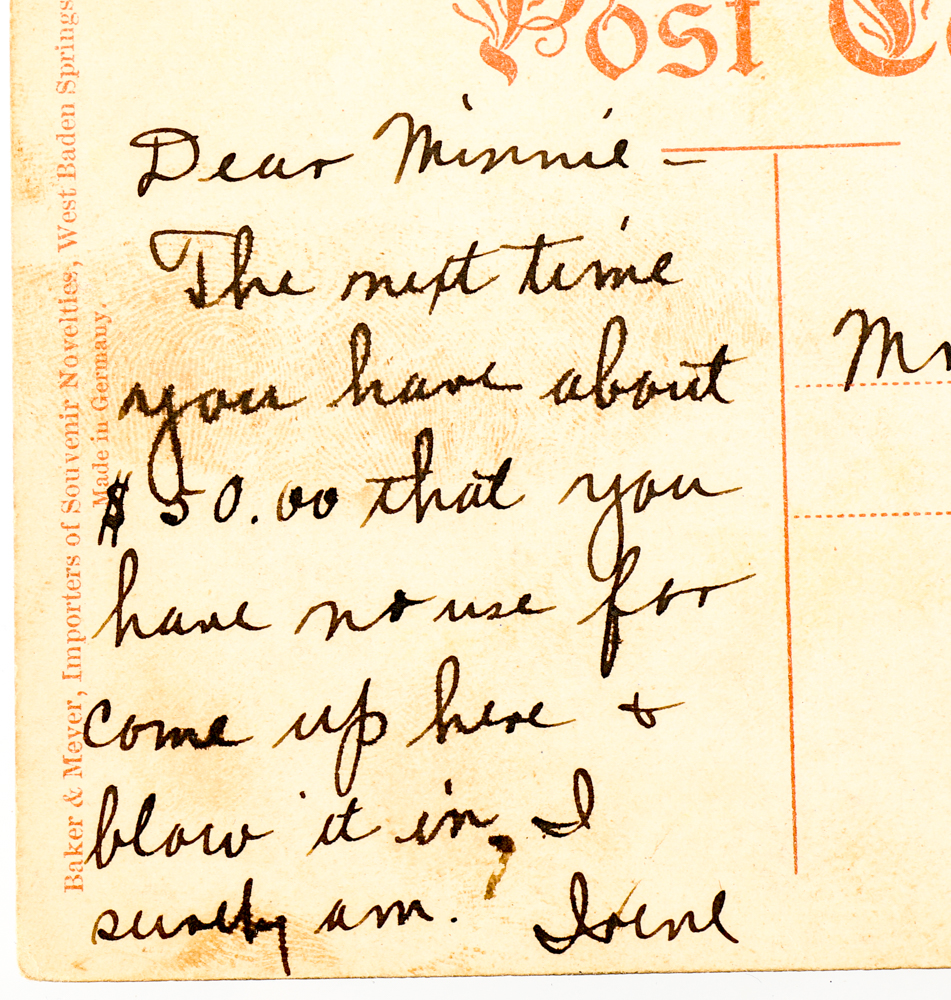 Post C
Dear Minnie –
The next time
you have about
$50.00 that you
have no use for
come up here &
blow it in, I
surely am. Irene
Mr
Baker & Meyer, Importers of Souvenir Novelties, West Baden Springs
Made in Germany.